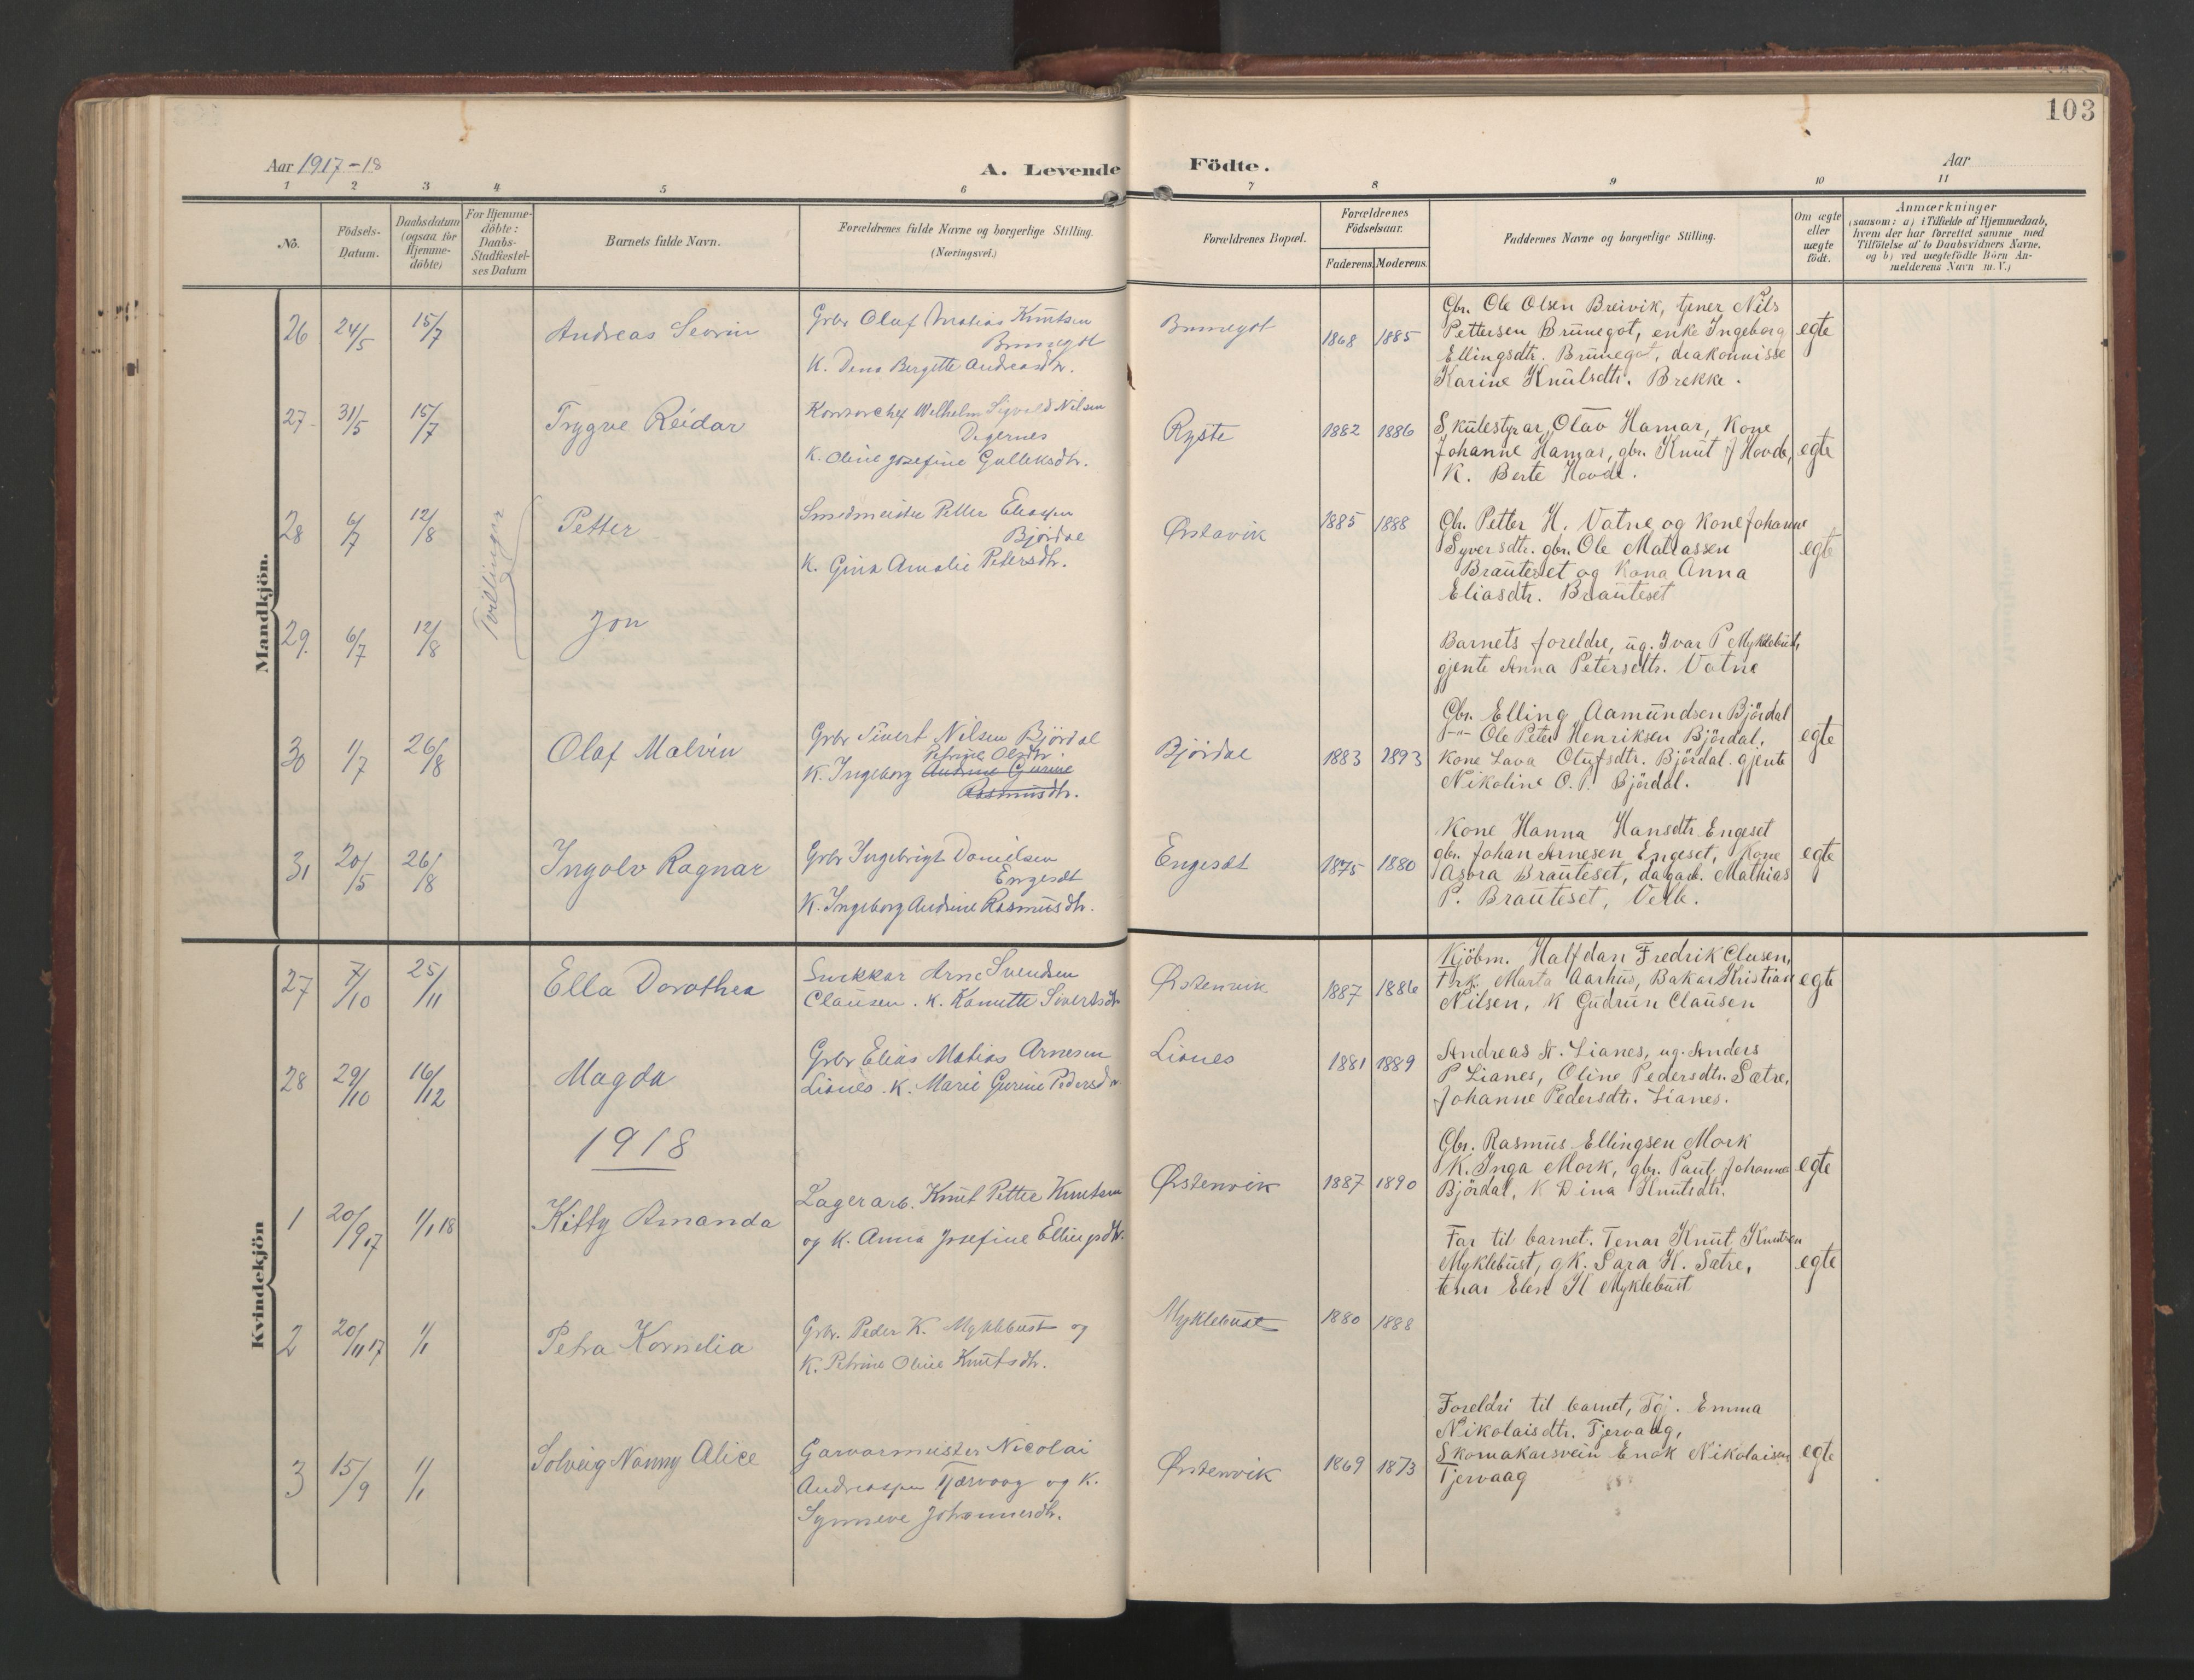 103
Aar 1917-18
A. Levende Födte.
Aar
1 2 3 4 5 6 7 8 9 10 11
No.
Födsels-Datum.
Daabsdatum (ogsaa for Hjemme-döbte)
For Hjemme-döbte: Daabs-Stadfæstel-ses Datum
Barnets fulde Navn.
Forældrenes fulde Navne og borgerlige Stilling. (Næringsvei.)
Forældrenes Bopæl.
Forældrenes Födselsaar.
Faderens. Moderens.
Faddernes Navne og borgerlige Stilling.
Om ægte eller uægte födt.
Anmærkninger
(saasom: a) i Tilfælde af Hjemmedaab,
hvem der har forrettet samme med
Tilföielse af to Daabsvidners Navne,
og b) ved uægtefödte Börn An-
melderens Navn m. V.)
Mandkjön.
26 24/5 15/7 Andreas Severin
Grbr Oluf Matias Knutsen
Brunegot
K. Dena Bergitte Andreasdtr.
Brunegot 1868 1885
Gbr. Ole Olsen Breivik, tjener Nils
Pettersen Brunegot, enke Ingeborg
Ellingsdtr. Brunegot, diakonnisse
Karine Knutsdtr. Brekke.
egte
27 31/5 15/7 Trygve Reidar
Kontorchef Wilhelm Sigvald Nilsen
Digernes
K. Oline Josefine Gulleksdtr.
Ryste 1882 1886
Skulestyrar Olav Hamar, Kone
Johanne Hamar, gbr. Knut J Hovde,
K. Berte Hovde.
egte
28 6/7 12/8 Tvillinger Petter
Smedmeister Petter Eliassen
Björdal
K. Gina Amalie Petersdtr.
Ørstavik 1885 1888
Gbr. Petter H. Vatne og Kone Johanne
Syversdtr. gbr. Ole Matiassen
Brauteset og Kona Anna
Eliasdtr. Brauteset
egte
29. 6/7 12/8 Jon
Barnets foreldre, ug. Ivar P Myklebust,
gjente Anna Petersdtr. Vatne
30 1/7 26/8 Olaf Malvin
Grbr Sivert Nilsen Björdal
Petrine Olsdtr
K. Ingeborg Andrine Gurine
Rasmusdtr.
Björdal 1883 1893
Gbr. Elling Aamundsen Björdal
-"- Ole Peter Henriksen Björdal,
Kone Lava Olufsdtr. Björdal. gjente
Nikoline O. P. Björdal.
egte
31 20/5 26/8 Ingolv Ragnar
Grbr Ingebrigt Danielsen
Engeset
K. Ingeborg Andrine Rasmusdtr.
Engeset 1875 1880
Kone Hanna Hansdtr Engeset
gbr. Johan Arnesen Engeset, Kone
Asora Brauteset, dagarb. Mathias
P. Brauteset, Velle.
egte
Kvindekjön
27 7/10 25/11 Ella Dorothea
Snekkar Arne Svendsen
Clausen. K. Kanutte Sivertsdtr
Ørstenvik 1887 1886
Kjöbm. Halfdan Fredrik Clusen,
frk. Marta Aarhus, Bakar Kristian
Nilsen, K Gudrun Clausen
egte
28 29/10 16/12 Magda
Grbr Elias Matias Arnesen
Lianes. K. Marie Gurine Pedersdtr.
Lianes 1881 1889
Andreas A. Lianes, ug. Anders
P Lianes, Oline Pedersdtr. Sætre,
Johanne Pedersdtr. Lianes.
1918
1 20/9 17 1/1 18 Kitty Amanda
Lagerarb. Knut Petter Knutsen
og K. Anna Josefine Ellingsdtr.
Ørstenvik 1887 1890
Gbr. Rasmus Ellingsen Mork
K. Inga Mork, gbr. Paul Johannes
Björdal, K Dina Knutsdtr.
egte
2 20/11 17 1/1 Petra Kornelia
Grbr. Peder K. Myklebust og
K. Petrine Oline Knutsdtr.
Myklebust 1880 1888
Far til barnet. Tenar Knut Knutsen
Myklebust, gK. Sara K. Sætre,
tenar Elen K Myklebust
egte
3 15/9 1/1 Solveig Nanny Alice
Garvarmeister Nicolai
Andreassen Tjærvaag og K.
Synneve Johannesdtr.
Ørstenvik 1869 1873
Foreldri til barnet, Tgj. Emma
Nikolaisdtr. Tjervaag,
Skomakarsvein Enok Nikolaisen
Tjervaag
egte